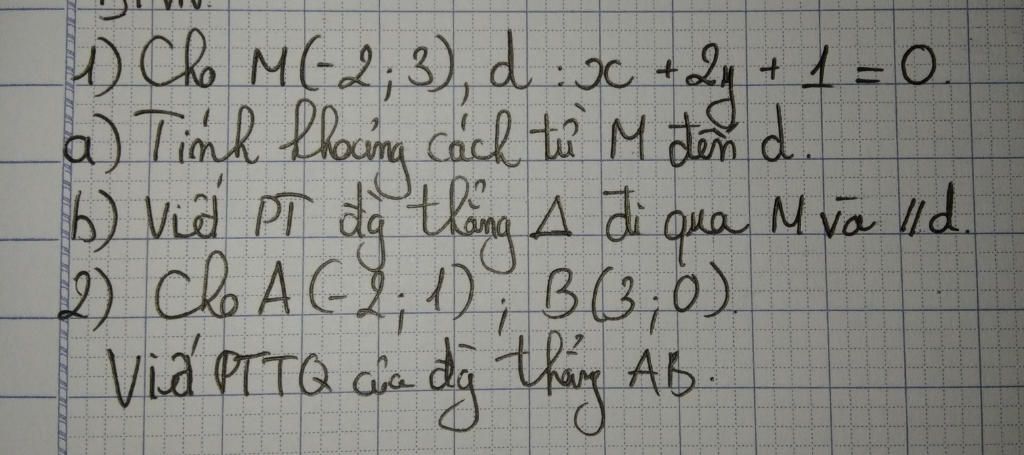 1) Cho M(-2;3), d : x + 2y + 1 = 0.
a) Tính khoảng cách từ M đến d.
b) Viết PT đg thẳng Δ đi qua M và // d.
2) Cho A(-2;1); B(3;0).
Viết PTTQ của đg thẳng AB.